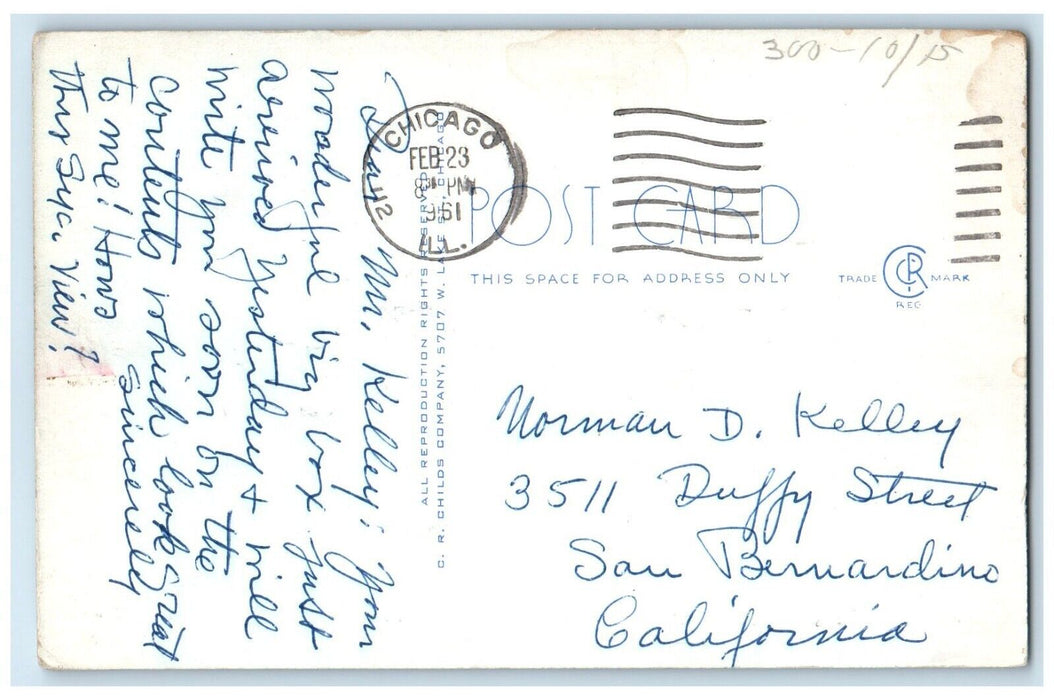 300-10/15
CHICAGO
FEB 23
8 PM
1961
ILL.
POST CARD
THIS SPACE FOR ADDRESS ONLY
TRADE CRP MARK
REG
Norman D. Kelley
3511 Duffy Street
San Bernardino
California
ALL REPRODUCTION RIGHTS RESERVED
C. R. CHILDS COMPANY, 5707 W. LAKE ST., CHICAGO
Dear Mr. Kelley: Your
wonderful big box just
arrived yesterday + will
write you soon on the
contents which look great
to me! Hows
this View?
Sincerely